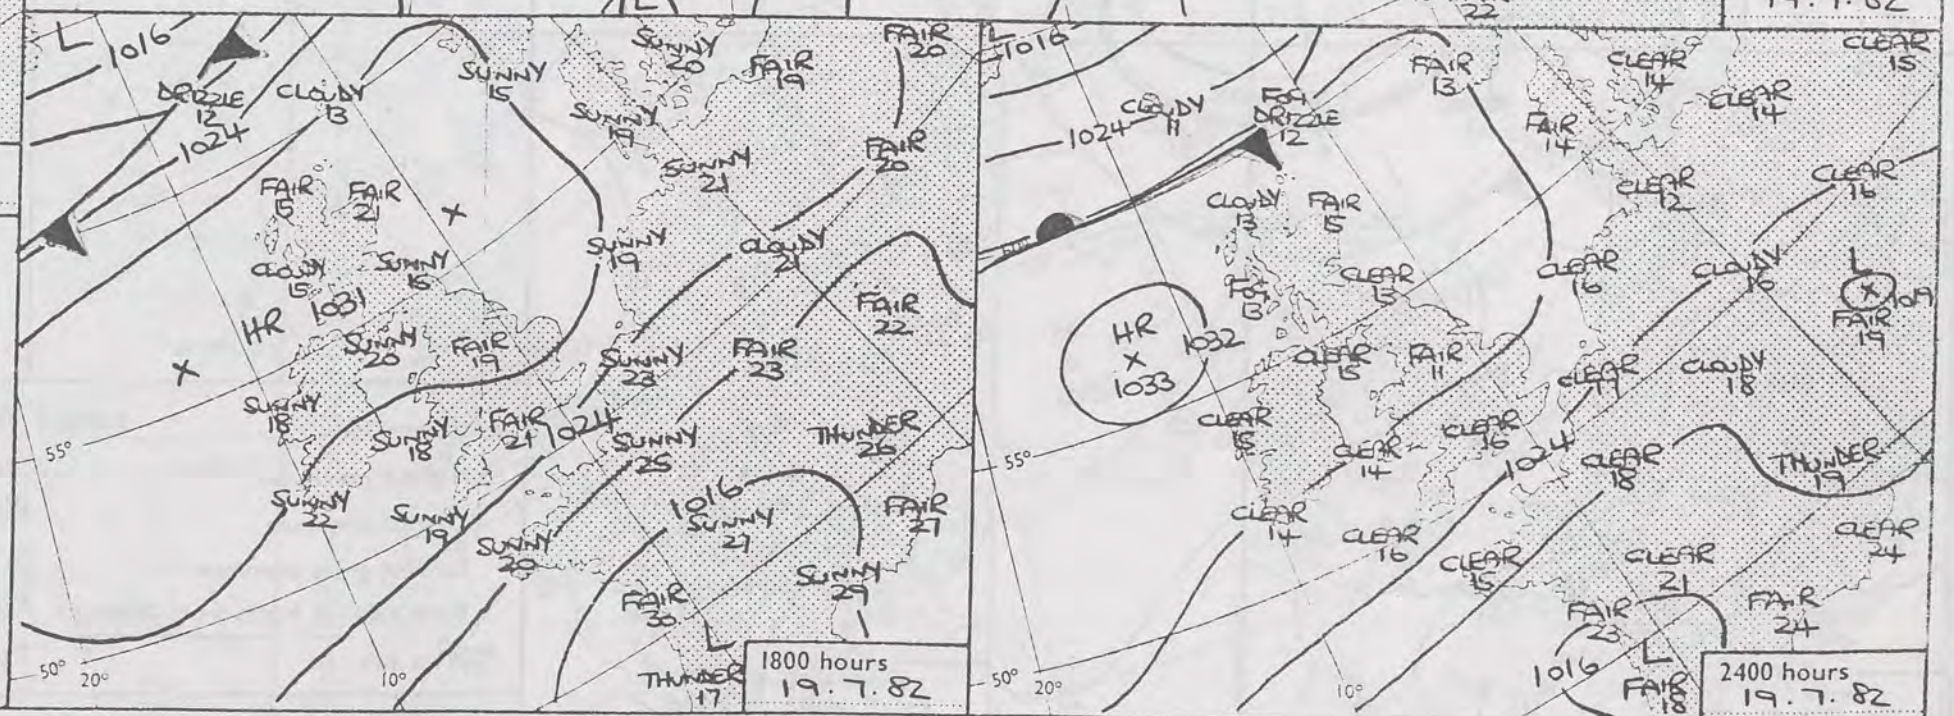 L
22
19.7.82
L
1016
DRIZZLE
12
1024
CLOUDY
13
SUNNY
15
SUNNY
20
FAIR
19
FAIR
20
SUNNY
19
SUNNY
21
FAIR
20
FAIR
5
FAIR
21
CLOUDY
15
SUNNY
15
SUNNY
19
CLOUDY
21
HR
1031
SUNNY
20
FAIR
19
SUNNY
23
FAIR
23
FAIR
22
SUNNY
18
SUNNY
18
FAIR
21
1024
SUNNY
25
THUNDER
26
55°
SUNNY
SUNNY
19
SUNNY
20
1016
SUNNY
27
FAIR
27
SUNNY
29
FAIR
30
L
THUNDER
17
50°
20°
10°
1800 hours
19.7.82
L
1016
CLOUDY
11
1024
FOG
DRIZZLE
12
FAIR
13
CLEAR
14
CLEAR
14
CLEAR
15
FAIR
14
CLEAR
12
CLEAR
16
CLOUDY
13
FAIR
15
60°
FOG
13
CLEAR
13
CLEAR
16
CLOUDY
16
L
1019
FAIR
19
HR
1032
1033
CLEAR
15
FAIR
11
CLEAR
17
CLOUDY
18
CLEAR
15
CLEAR
14
CLEAR
16
1024
CLEAR
18
THUNDER
19
55°
CLEAR
14
CLEAR
16
CLEAR
15
CLEAR
21
CLEAR
24
FAIR
23
FAIR
24
1016
L
FAIR
18
50°
20°
10°
2400 hours
19.7.82